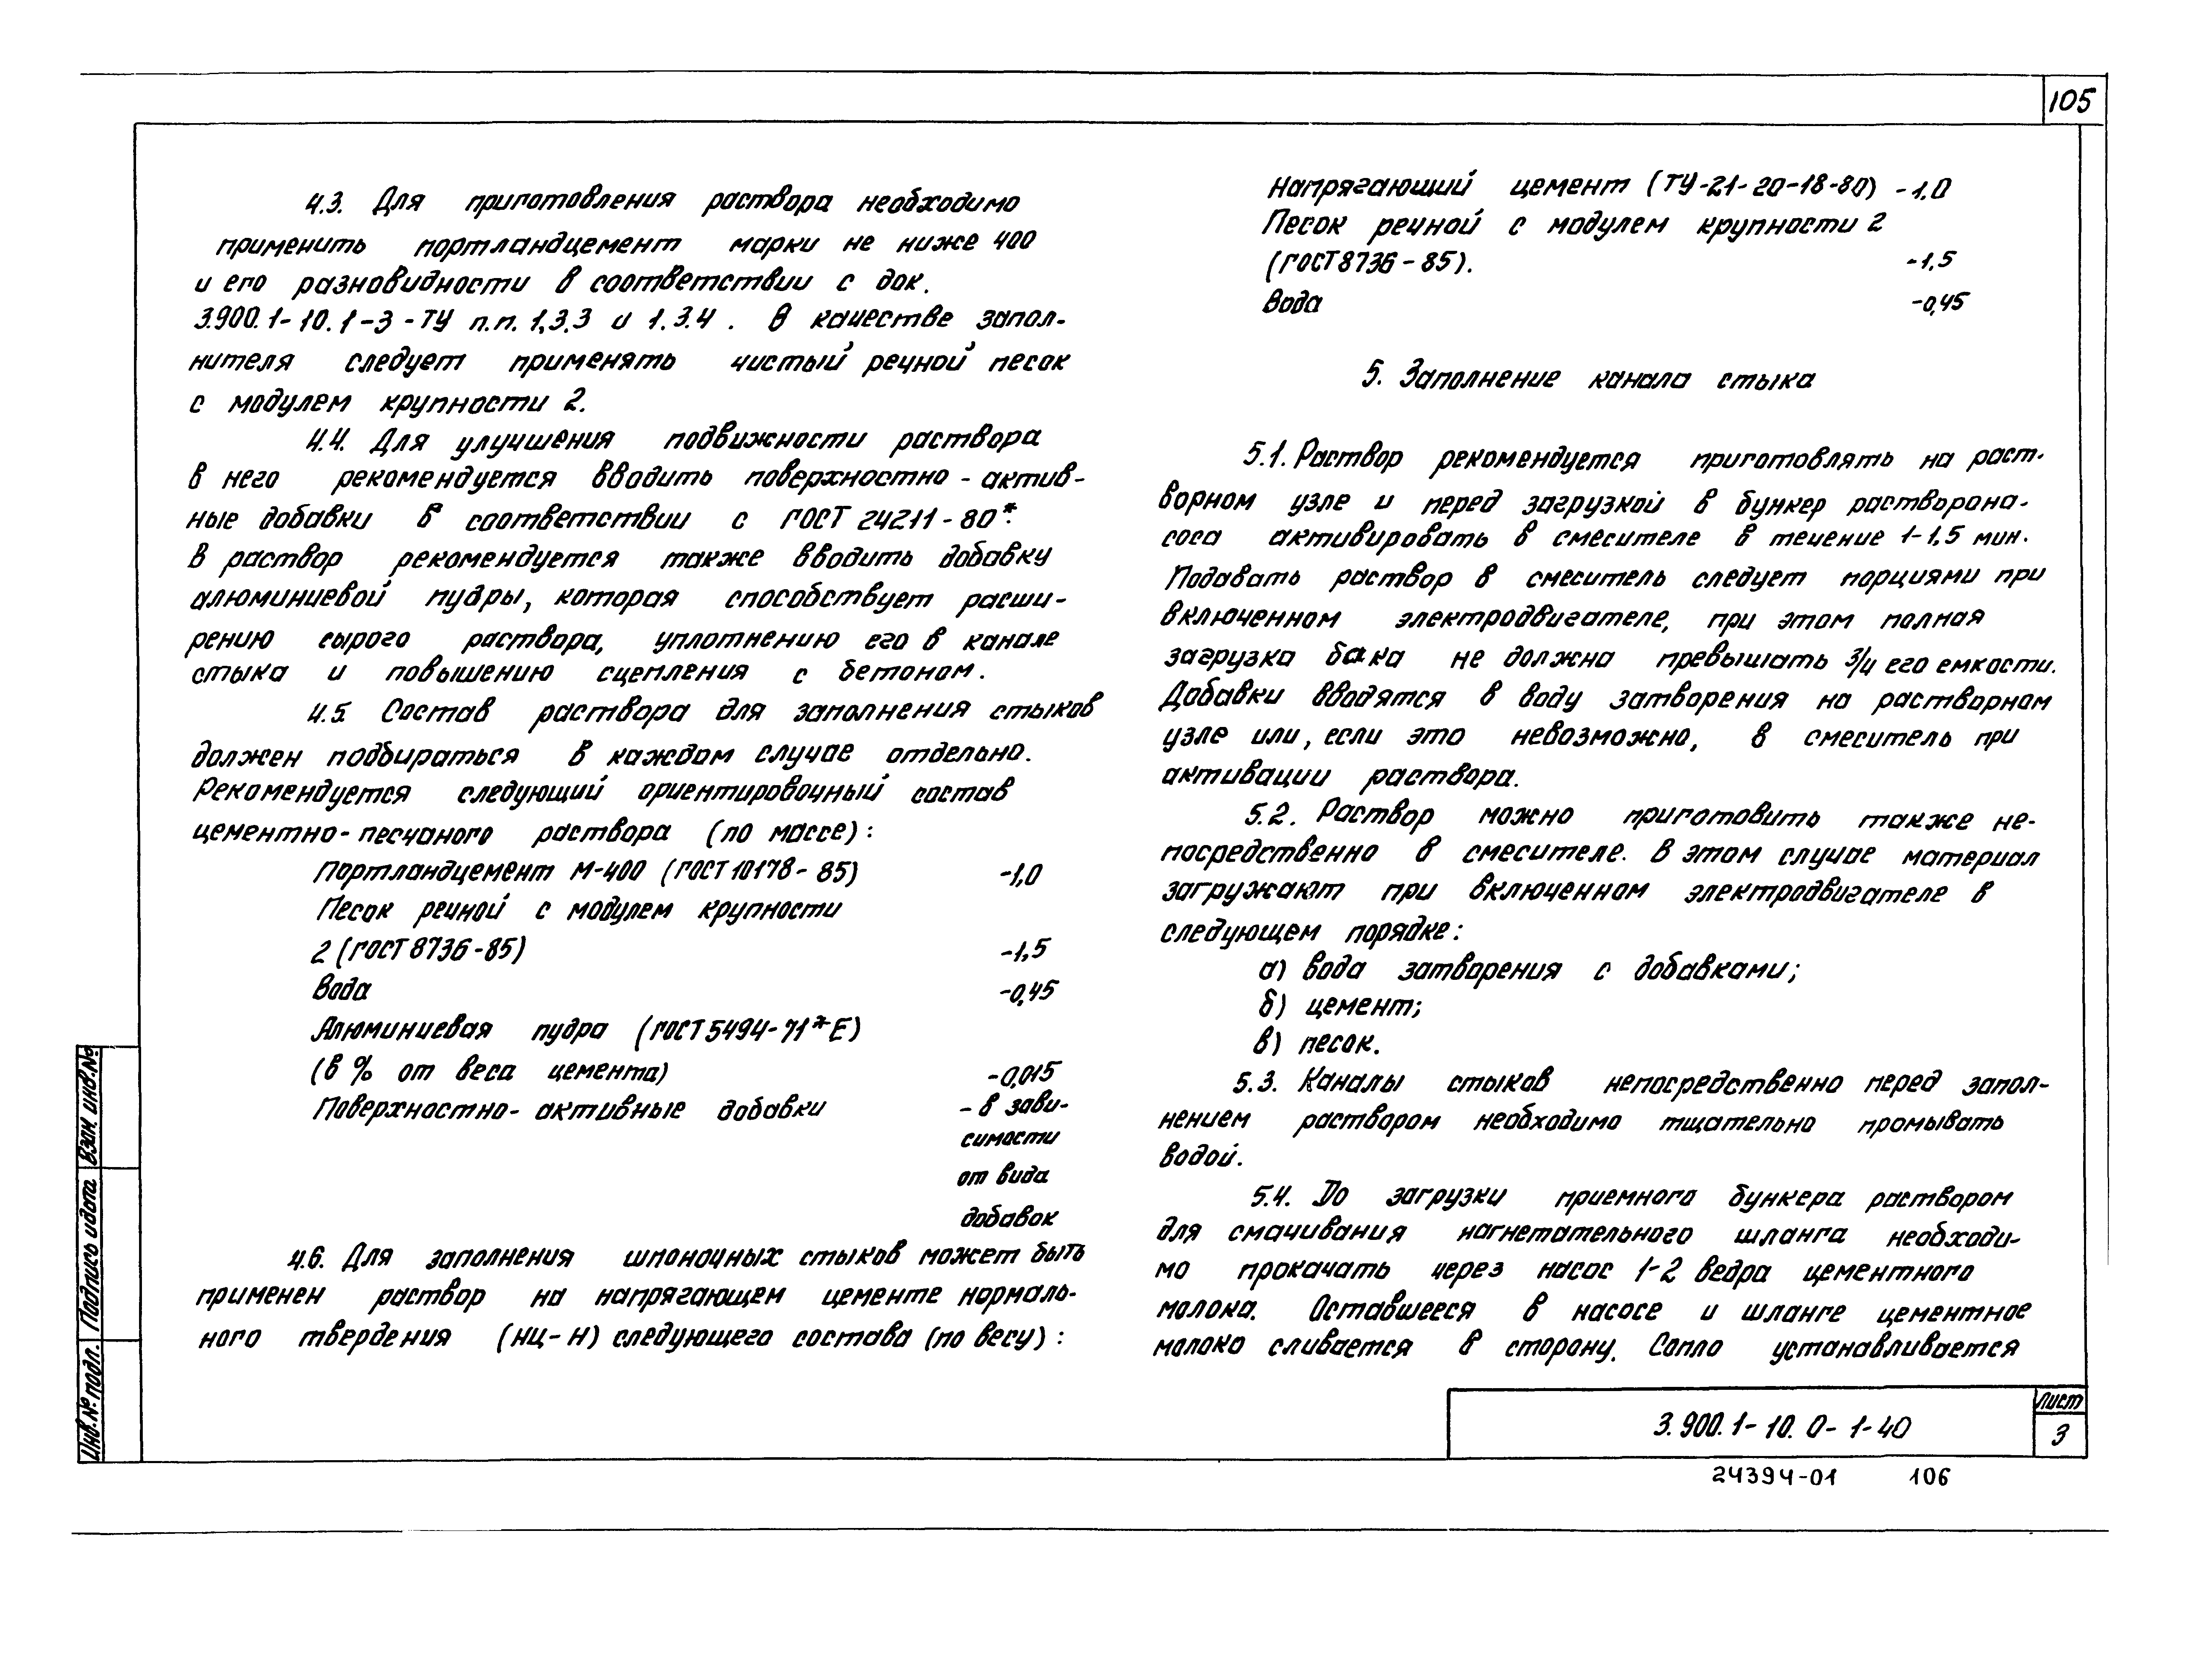 105
4.3. Для приготовления раствора необходимо
применить портландцемент марки не ниже 400
и его разновидности в соответствии с док.
3.900.1-10.1-3-ТУ п.п. 1.3.3 и 1.3.4. В качестве запол-
нителя следует применять чистый речной песок
с модулем крупности 2.
4.4. Для улучшения подвижности раствора
в него рекомендуется вводить поверхностно-актив-
ные добавки в соответствии с ГОСТ 24211-80*.
В раствор рекомендуется также вводить добавку
алюминиевой пудры, которая способствует расши-
рению сырого раствора, уплотнению его в канале
стыка и повышению сцепления с бетоном.
4.5. Состав раствора для заполнения стыков
должен подбираться в каждом случае отдельно.
Рекомендуется следующий ориентировочный состав
цементно-песчаного раствора (по массе):
Портландцемент М-400 (ГОСТ 10178-85) -1,0
Песок речной с модулем крупности
2 (ГОСТ 8736-85) -1,5
Вода -0,45
Алюминиевая пудра (ГОСТ 5494-71*Е)
(в % от веса цемента) -0,015
Поверхностно-активные добавки - в зави-
симости
от вида
добавок
4.6. Для заполнения шпоночных стыков может быть
применен раствор на напрягающем цементе нормаль-
ного твердения (НЦ-Н) следующего состава (по весу):
Напрягающий цемент (ТУ-21-20-18-80) -1,0
Песок речной с модулем крупности 2
(ГОСТ 8736-85). -1,5
Вода -0,45
5. Заполнение канала стыка
5.1. Раствор рекомендуется приготовлять на раст-
ворном узле и перед загрузкой в бункер растворона-
соса активировать в смесителе в течение 1-1,5 мин.
Подавать раствор в смеситель следует порциями при
включенном электродвигателе, при этом полная
загрузка бака не должна превышать 3/4 его емкости.
Добавки вводятся в воду затворения на растворном
узле или, если это невозможно, в смеситель при
активации раствора.
5.2. Раствор можно приготовить также не-
посредственно в смесителе. В этом случае материал
загружают при включенном электродвигателе в
следующем порядке:
а) вода затворения с добавками;
б) цемент;
в) песок.
5.3. Каналы стыков непосредственно перед запол-
нением раствором необходимо тщательно промывать
водой.
5.4. До загрузки приемного бункера раствором
для смачивания нагнетательного шланга необходи-
мо прокачать через насос 1-2 ведра цементного
молока. Оставшееся в насосе и шланге цементное
молоко сливается в сторону. Сопло устанавливается
Взам. инв.№
Подпись и дата
Инв.№ подл.
3.900.1-10.0-1-40
Лист
3
24394-01 106